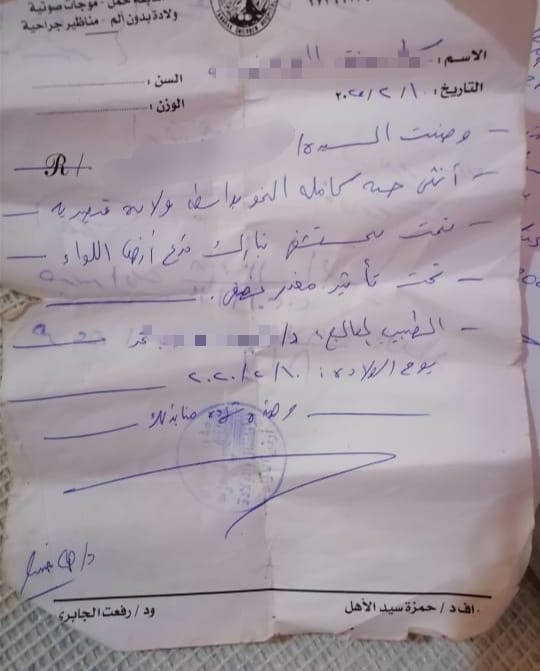 متابعة حمل - موجات صوتية
ولادة بدون ألم - مناظير جراحية
الاسم :
السن :
التاريخ : ٢٠٢٠/٢/١٠
الوزن :
وضعت السيدة /
R/
- أنثى حية كاملة النمو بواسطة ولادة قيصرية
- تمت بمستشفى تبارك فرع أرض اللواء
- تحت تأثير مخدر نصفي .
- الطبيب المعالج : د/
يوم الولادة : ٢٠٢٠/٢/١٠
وهذه شهادة منا بذلك
د/
أ.ف.د / حمزة سيد الأهل
ود / رفعت الجابرى